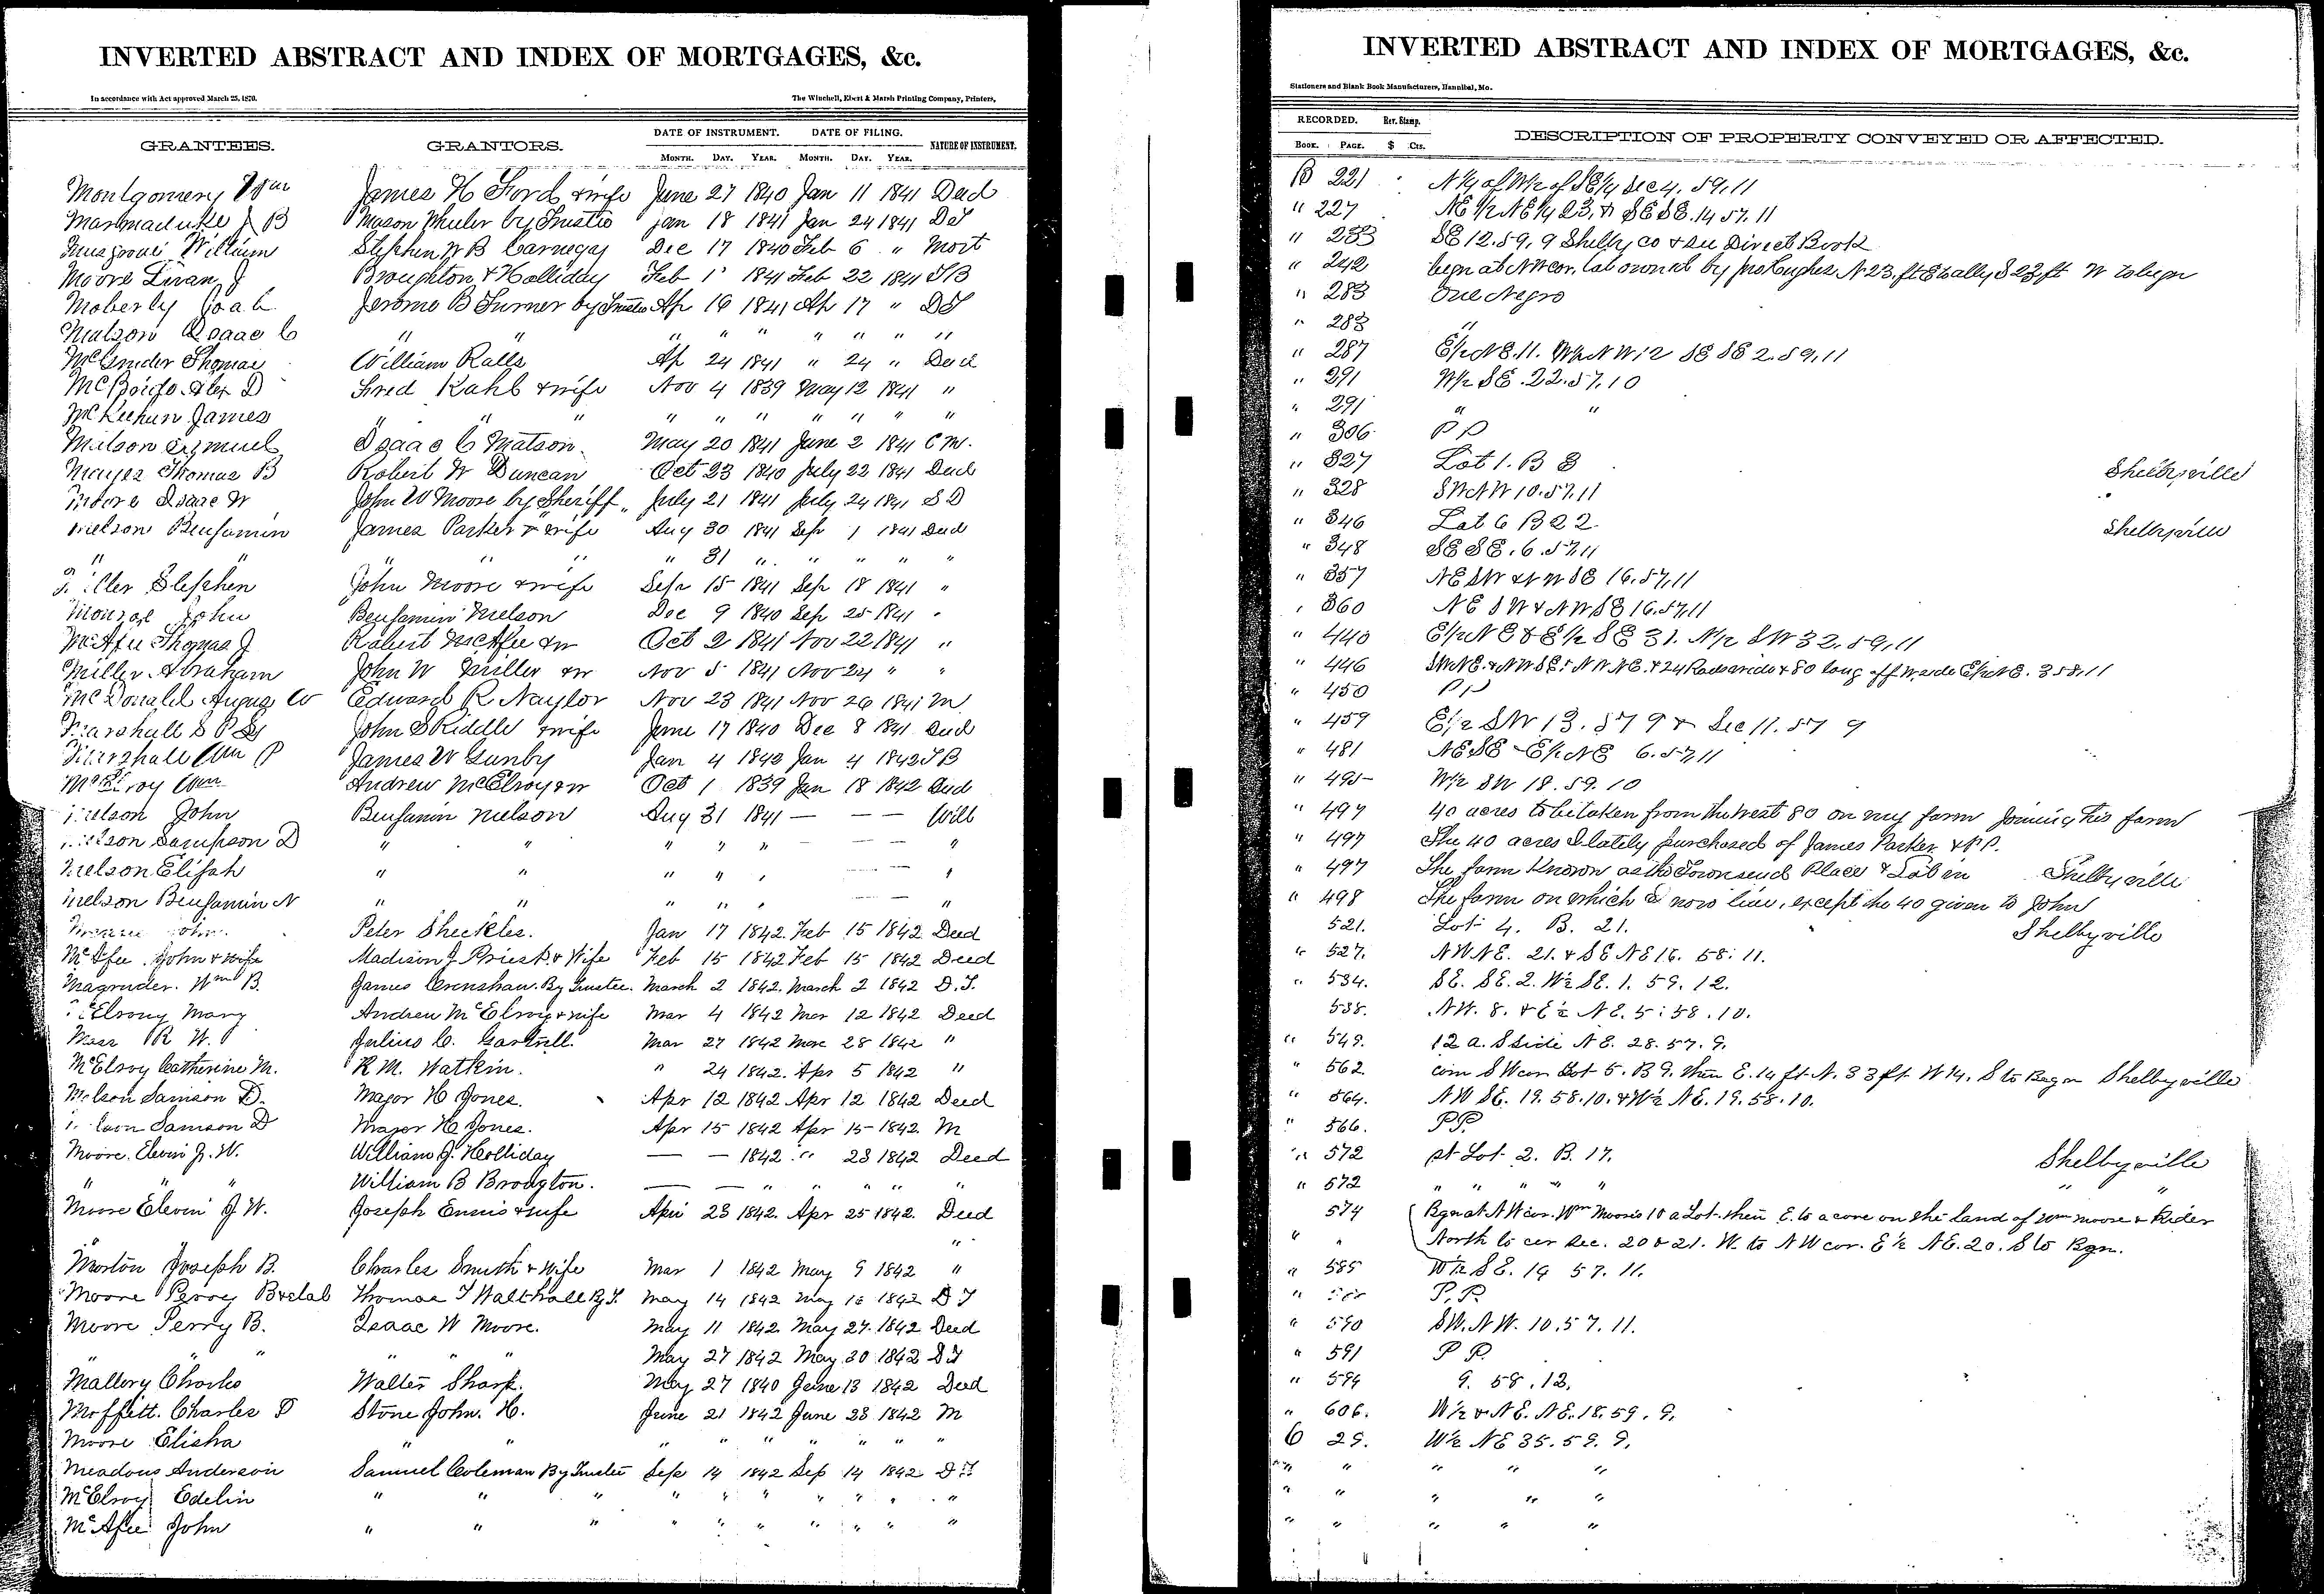 INVERTED ABSTRACT AND INDEX OF MORTGAGES, &c.
In accordance with Act approved March 25, 1870.
The Winchell, Ebert & Marsh Printing Company, Printers,
GRANTEES. GRANTORS. DATE OF INSTRUMENT. DATE OF FILING. NATURE OF INSTRUMENT.
MONTH. DAY. YEAR. MONTH. DAY. YEAR.
Montgomery James H Ford & wife June 27 1840 Jan 11 1841 Deed
Marmaduke B Mason Wheeler by Trustee Jan 18 1841 Jan 24 1841 DT
William Stephen W B Carnegay Dec 17 1840 Feb 6 " Mort
Moore J Broughton & Holliday Feb 1 1841 Feb 22 1841 TB
Moberly Jerome B Turner by Trustee Ap 16 1841 Ap 17 " DT
Matson Isaac C " " " " " " " "
Thomas William Ralls Ap 24 1841 " 24 " Deed
D Fred Kahl & wife Nov 4 1839 May 12 1841 "
McKeehen James " " " " " " " " "
Matson Isaac C Matson May 20 1841 June 2 1841 C M.
Mayes Thomas B Robert W Duncan Oct 23 1840 July 22 1841 Deed
Moore Isaac W John W Moore by Sheriff July 21 1841 July 24 1841 S D
Melson Benjamin James Parker & wife Aug 30 1841 Sep 1 1841 Deed
" " " " " 31 " " " " "
Miller Stephen John Moore & wife Sep 15 1841 Sep 18 1841 "
John Benjamin Melson Dec 9 1840 Sep 25 1841 "
McAfee Thomas J Robert McAfee & w Oct 2 1841 Nov 22 1841 "
Miller Abraham John W Miller & w Nov 5 1841 Nov 24 " "
McDonald Angus W Edward R Naylor Nov 23 1841 Nov 26 1841 M
Marshall John S Riddle & wife June 17 1840 Dec 8 1841 Deed
Marshall Wm P James W Gunby Jan 4 1842 Jan 4 1842 TB
McElroy Wm Andrew McElroy & w Oct 1 1839 Jan 18 1842 Deed
Melson John Benjamin Melson Aug 31 1841 — — — Will
Melson Sampson D " " " " " — — — "
Melson Elijah " " " " " — — "
Melson Benjamin N " " " " " — — "
John Peter Sheckles. Jan 17 1842. Feb 15 1842 Deed
McAfee John & wife Madison J Priest & Wife Feb 15 1842 Feb 15 1842 Deed
Magruder. Wm B. James Crenshaw. By Trustee. March 2 1842. March 2 1842 D. T.
McElroy Mary Andrew McElroy & wife Mar 4 1842 Mar 12 1842 Deed
R W. Julius C. Gartrell. Mar 27 1842 Mar 28 1842 "
McElroy Catherine M. R M. Watkin. " 24 1842. Apr 5 1842 "
Melson Samson D. Major H Jones. Apr 12 1842 Apr 12 1842 Deed
Melson Samson D Major H Jones. Apr 15 1842 Apr 15 1842. M
Moore. Elevin J. W. William J. Holliday — — 1842 " 23 1842 Deed
" " " William B Brougton. — — " " " " "
Moore Elevin J W. Joseph Ennis & wife Apr 23 1842. Apr 25 1842. Deed
"
Morton Joseph B. Charles Smith & Wife Mar 1 1842 May 9 1842 "
Moore Thomas J Walthall By T. May 14 1842 May 16 1842 D T
Moore Perry B. Isaac W Moore. May 11 1842. May 27. 1842 Deed
" " " " " May 27 1842 May 30 1842 D T
Mallery Charles Walter Sharp. May 27 1840 June 13 1842 Deed
Moffett. Charles D Stone John. H. June 21 1842 June 23 1842 M
Moore Elisha " " " " " " " " "
Meadows Anderson Samuel Coleman By Trustee Sep 14 1842 Sep 14 1842 D T
McElroy Edelin " " " " " " " " " "
McAfee John " " " " " " " " " "
INVERTED ABSTRACT AND INDEX OF MORTGAGES, &c.
Stationers and Blank Book Manufacturers, Hannibal, Mo.
RECORDED. Rev. Stamp. DESCRIPTION OF PROPERTY CONVEYED OR AFFECTED.
BOOK. PAGE. $ Cts.
B 221 N½ of W½ of SE¼ Sec 4. 59, 11
" 227 NE ½ NE¼ 23, & SE SE. 14 57. 11
" 233 SE 12. 59, 9 Shelby co & see Direct Book
" 242 begn at NW cor. Lot owned by N 23 ft E to ally S 23 ft W to begn
" 283 One Negro
" 283 "
" 287 E½ NE. 11. W½ NW 12 SE SE 2. 59, 11
" 291 W½ SE. 22. 57. 10
" 291 " "
" 306 P P
" 327 Lot 1. B 8 Shelbyville
" 328 SW NW 10. 57. 11
" 346 Lot 6 B 22 Shelbyville
" 348 SE SE. 6. 57. 11
" 357 NE SW & NW SE 16. 57, 11
" 360 NE SW & NW SE 16. 57, 11
" 440 E½ NE & E½ SE 31. N½ SW 32. 59, 11
" 446 SW NE. & NW SE. NW NE. & 24 Rods wide & 80 long off W side E½ NE. 3 58, 11
" 450 P P
" 459 E½ SW 13. 57 9 & Sec 11. 57 9
" 481 NE SE E½ NE 6. 57 11
" 495 W½ SW 18. 59. 10
" 497 40 acres to be taken from the West 80 on my farm Joining his farm
" 497 The 40 acres I lately purchased of James Parker & P.P.
" 497 The farm Known as the Townsend Place & Lot in Shelbyville
" 498 The farm on which I now live, except the 40 given to John
521. Lot 4. B. 21. Shelbyville
" 527. NW NE. 21. & SE NE 16. 58: 11.
" 534. SE. SE. 2. W½ SE. 1. 59. 12.
538. NW. 8. & E½ NE. 5: 58. 10.
" 549. 12 a. S Side NE. 28. 57. 9.
" 562. com SW cor Lot 5. B 9. then E. 14 ft. N. 33 ft W 14. S to Begn Shelbyville
" 564. NW SE. 19. 58. 10. & W½ NE. 19. 58. 10.
" 566. P.P.
" 572 pt Lot 2. B. 17. Shelbyville
" 572 " " " " " " "
574 Bgn at NW cor. Wm Moores 10 a Lot. then E. to a corn on the land of Wm Moore & Rider
" " North to cor Sec. 20 & 21. W. to NW cor. E½ NE. 20. S to Bgn.
" 585 W½ SE. 19 57. 11.
" P. P.
" 590 SW. NW. 10. 57. 11.
" 591 P P.
" 594 9. 58. 12.
" 606. W½ & NE. NE. 18. 59. 9.
C 29. W½ NE 35. 59. 9.
" " " " "
" " " " "
" " " " "